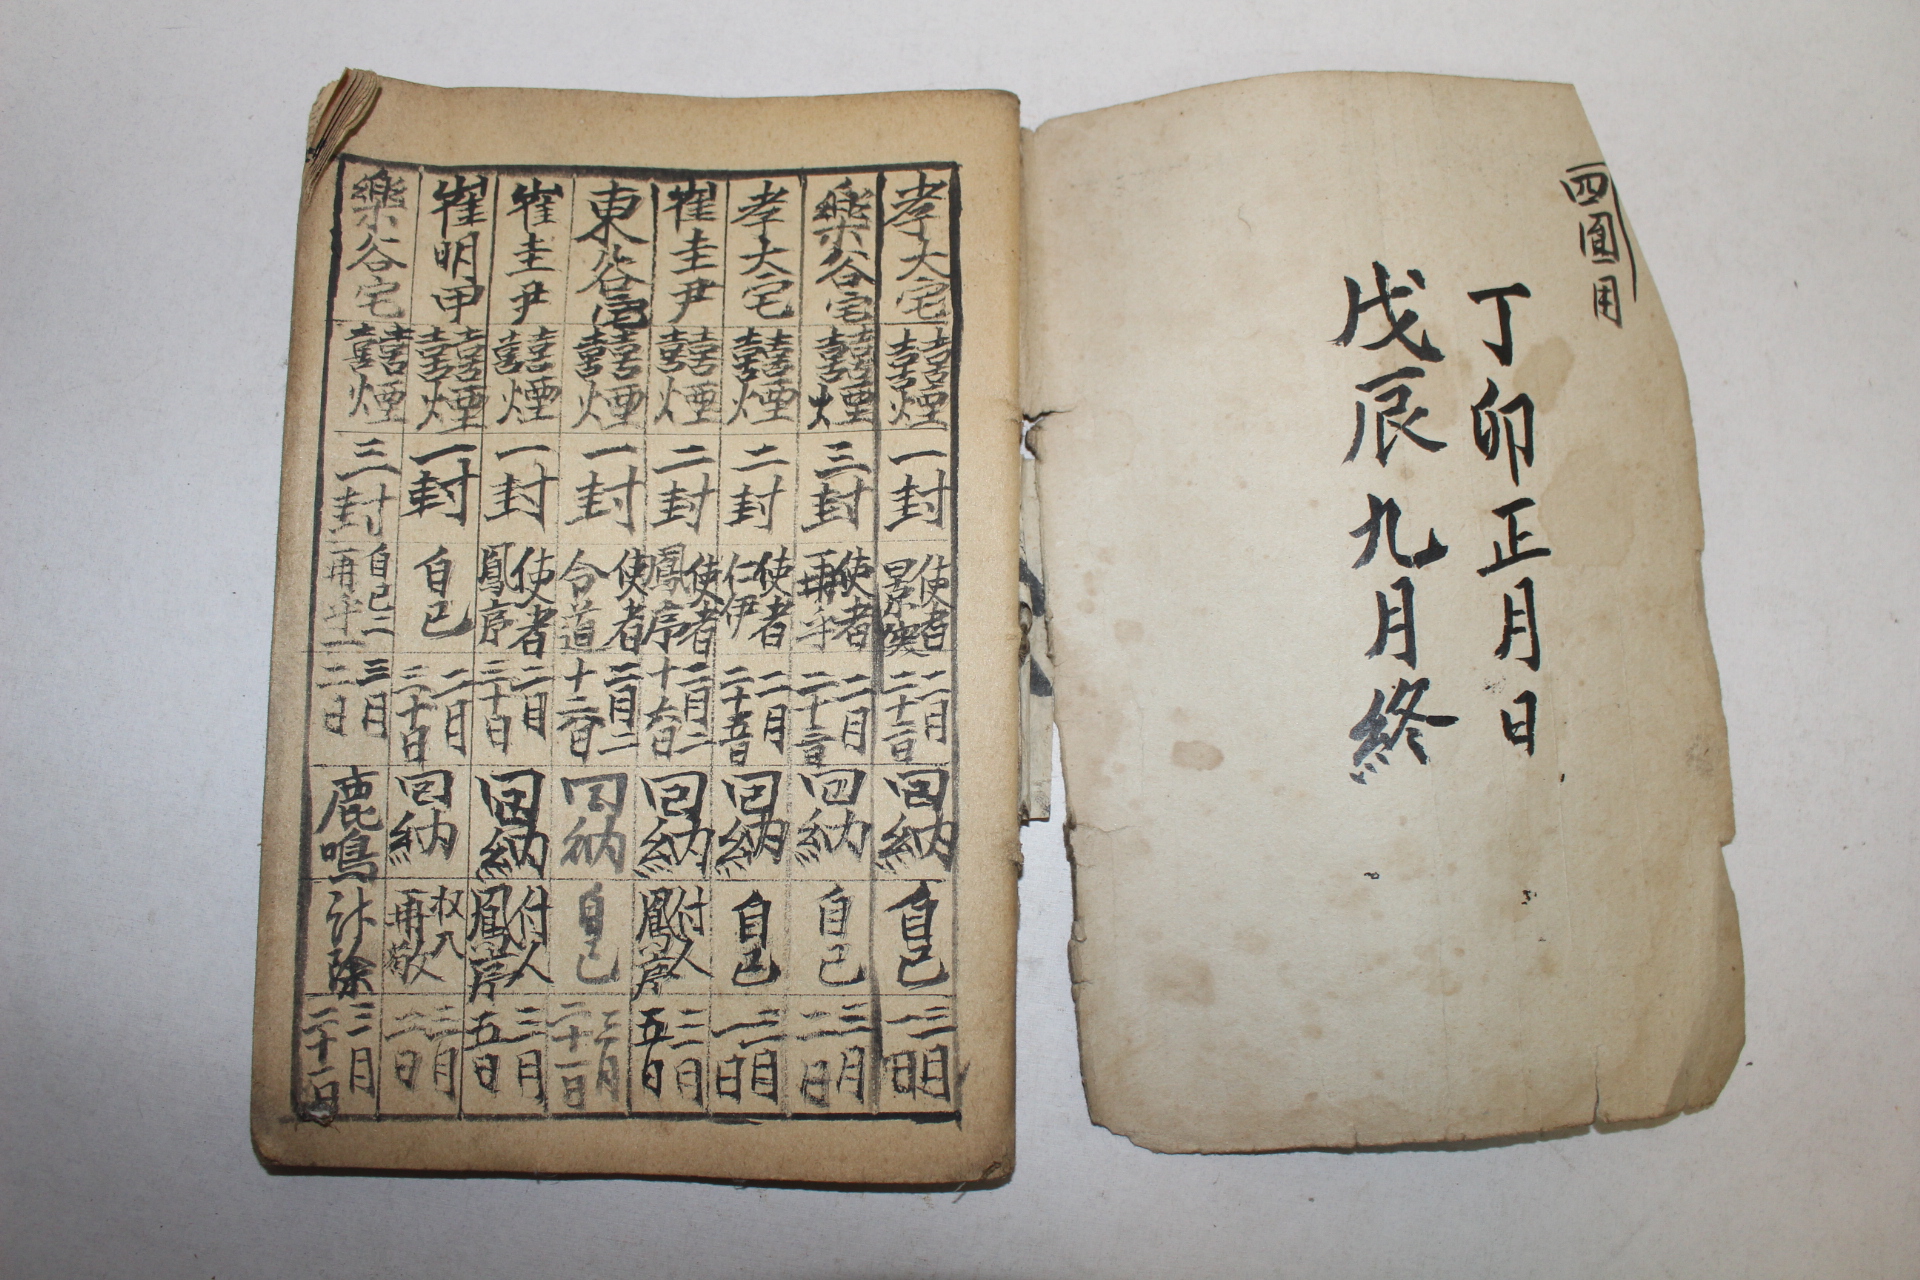 四圓用
丁卯正月日
戊辰九月終
孝大宅 囍煙 一封 使者 二月二十三日 回納 自己 三月一日
樂谷宅 囍煙 三封 使者再乎 二月二十三日 回納 自己 三月二日
孝大宅 囍煙 二封 使者仁伊 二月二十五日 回納 自己 三月一日
崔圭尹 囍煙 二封 使者鳳序 二月二十六日 回納 付人鳳序 三月五日
東谷宅 囍煙 一封 使者令道 二月二十二日 回納 自己 三月二十一日
崔圭尹 囍煙 一封 使者鳳序 二月三十日 回納 付人鳳序 三月五日
崔明甲 囍煙 一封 自己 二月三十日 回納 再敬 三月二日
樂谷宅 囍煙 三封 自己二再乎一 三月二日 鹿鳴計除 三月二十一日